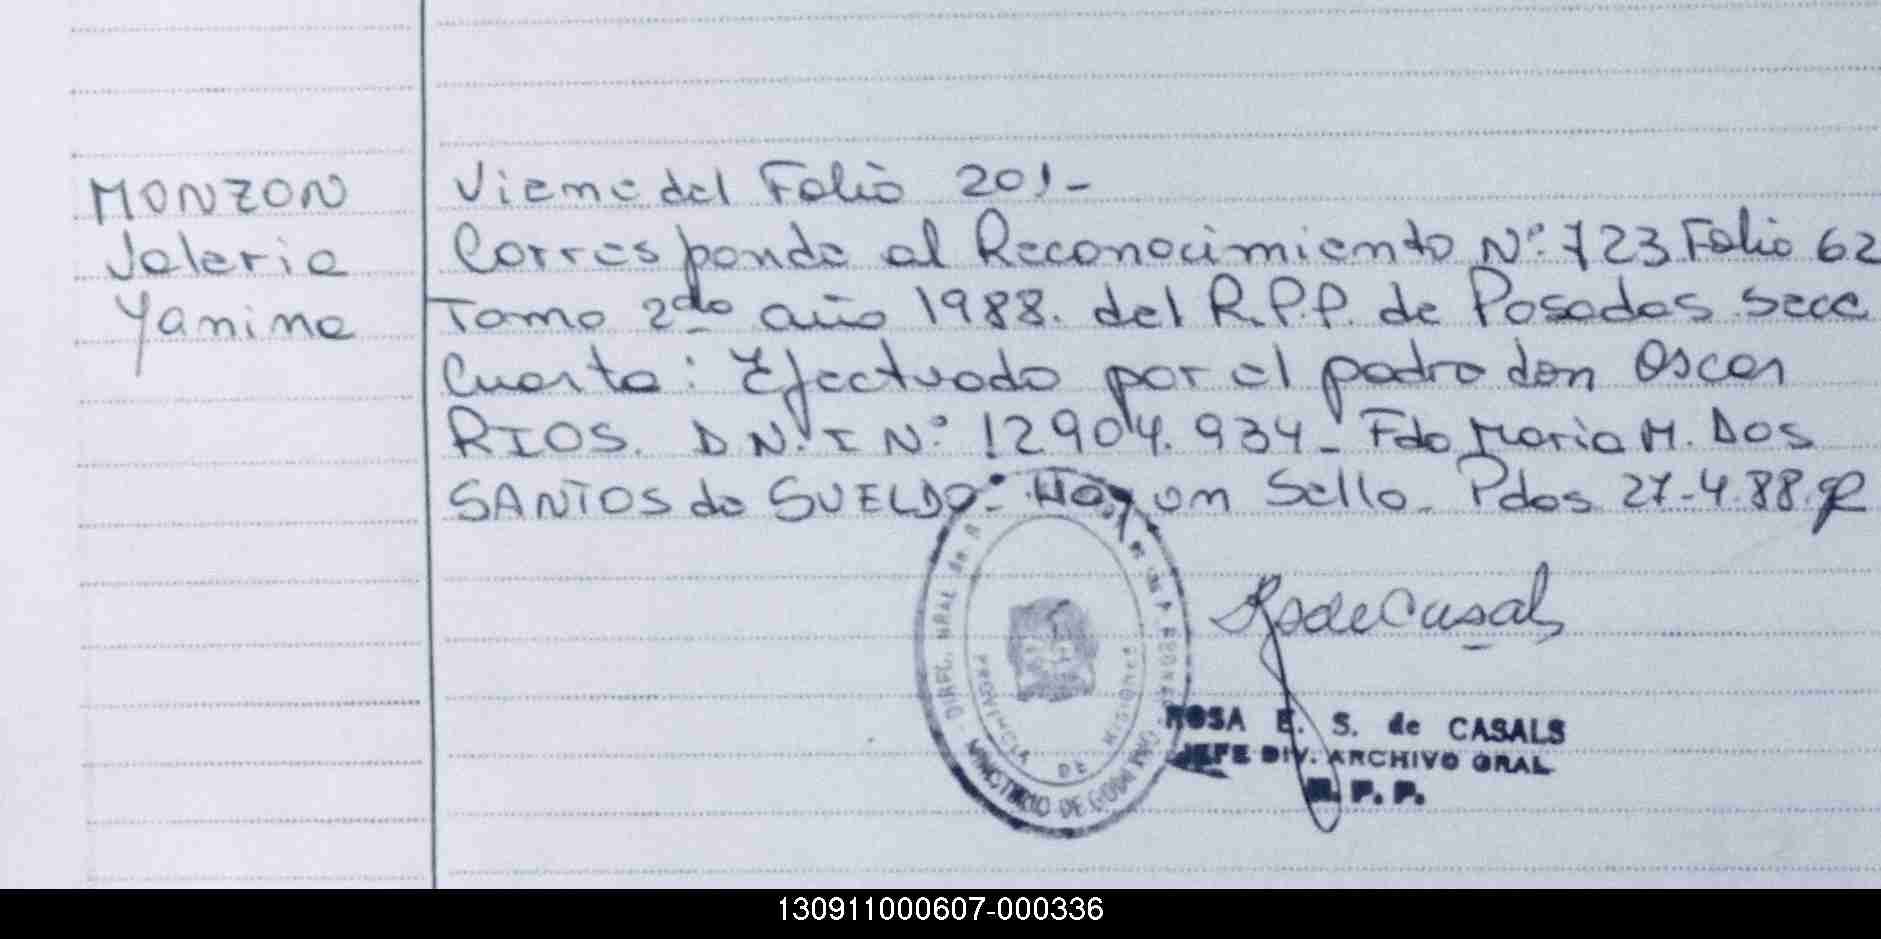 MONZON
Valeria
Yanina
Viene del Folio 201-
Corresponde al Reconocimiento Nº 723 Folio 62
Tomo 2do año 1988. del R.P.P. de Posadas secc
Cuarta: Efectuado por el padre don Oscar
RIOS. D.N.I Nº 12904.934- Fdo Maria M. Dos
SANTOS de SUELDO- Hay un Sello. Pdas 27-4.88.
RSdeCasals
PROVINCIA DE MISIONES
MINISTERIO DE GOBIERNO
ROSA E. S. de CASALS
JEFE DIV. ARCHIVO GRAL
R. P. P.
130911000607-000336